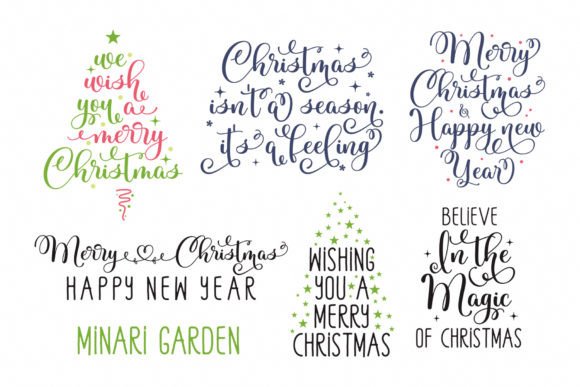 we
wish
you a
merry
Christmas
Christmas
isn't a season.
it's a feeling
Merry
Christmas
&
Happy new
Year
Merry Christmas
HAPPY NEW YEAR
MINARI GARDEN
WISHING
YOU A
MERRY
CHRISTMAS
BELIEVE
In the
Magic
OF CHRISTMAS